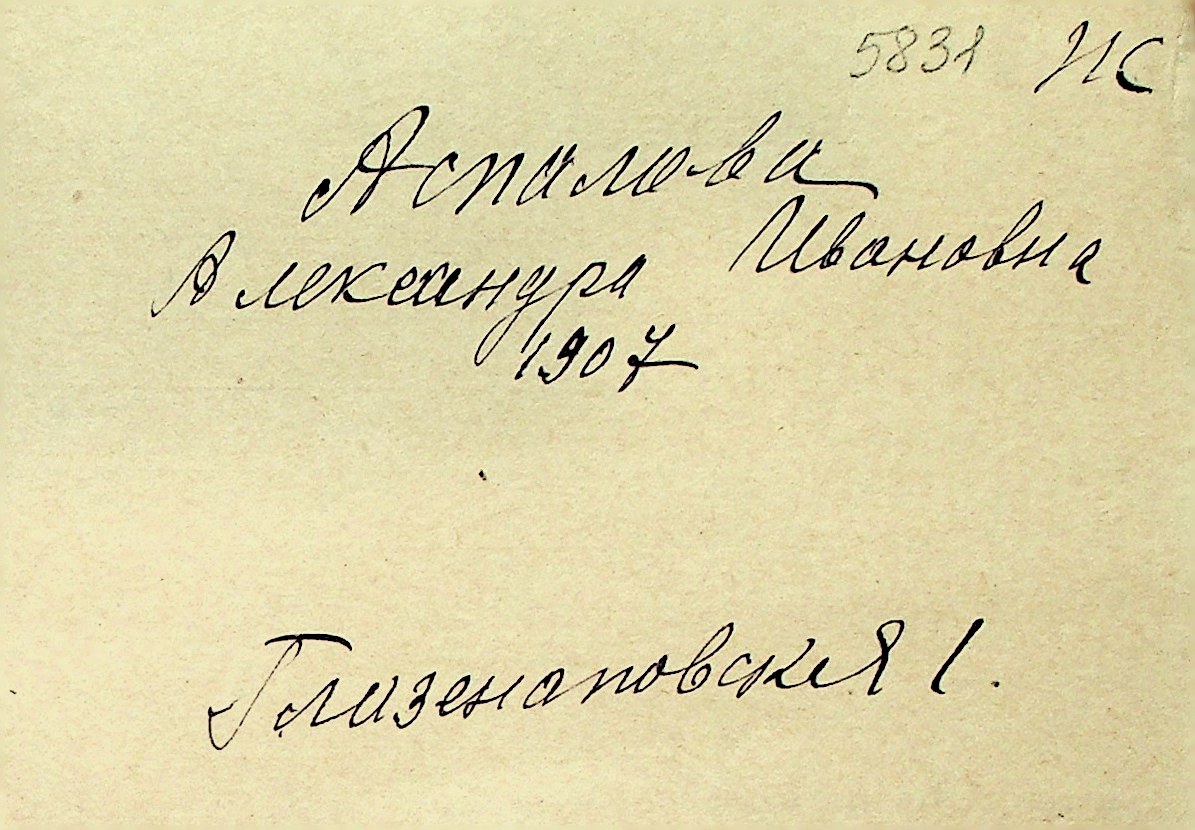 5831 ИС
Аспалова
Александра Ивановна
1907
Глазенаповская 1.